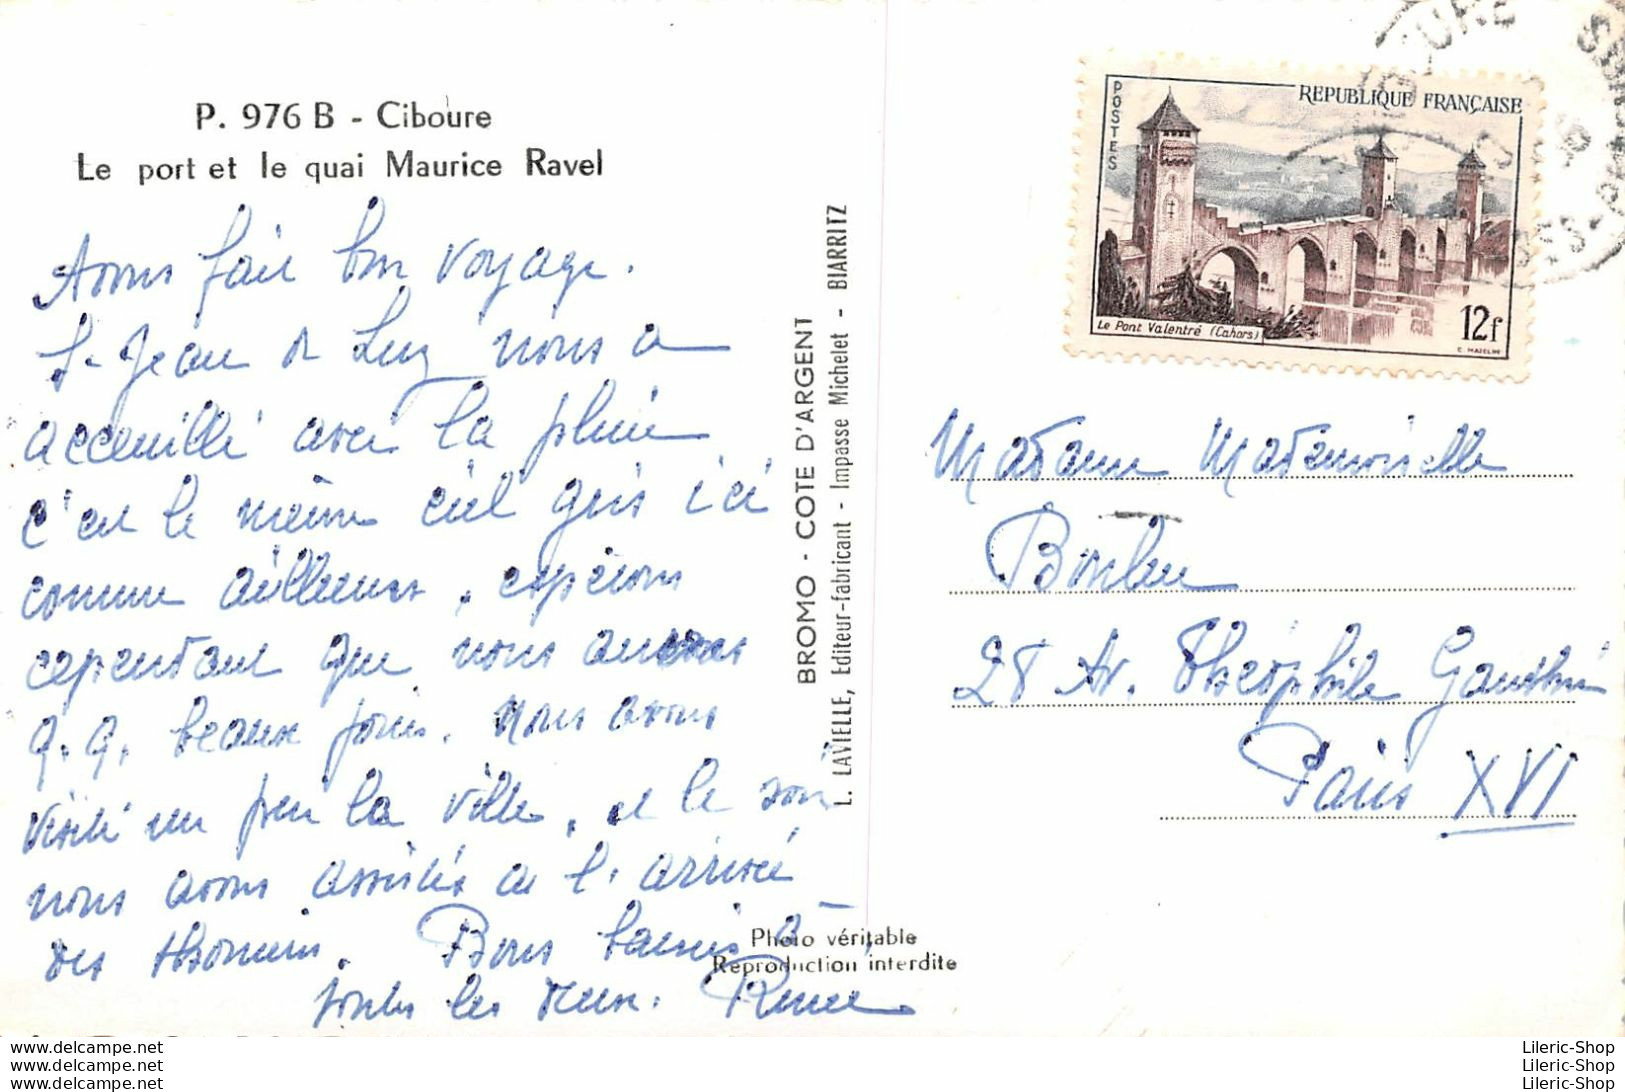 P. 976 B - Ciboure
Le port et le quai Maurice Ravel
Avons fait bon voyage.
S-Jean de Luz nous a
acceuilli avec la pluie
c'est le même ciel gris ici
comme ailleurs, espérons
cependant que nous aurons
q.q. beaux jours. Nous avons
visité un peu la ville, et le soir
nous avons assistés a l'arrivée
des thoniers. Bons baisers à
toutes les deux. Renée
BROMO - COTE D'ARGENT
L. LAVIELLE, Editeur-fabricant - Impasse Michelet - BIARRITZ
Photo véritable
Reproduction interdite
POSTES
REPUBLIQUE FRANÇAISE
Le Pont Valentré (Cahors)
12f
C. MAZELIN
Madame Mademoiselle
28 Av. Théophile Gauthier
Paris XVI
www.delcampe.net
www.delcampe.net
www.delcampe.net
Lileric-Shop
Lileric-Shop
Lileric-Shop